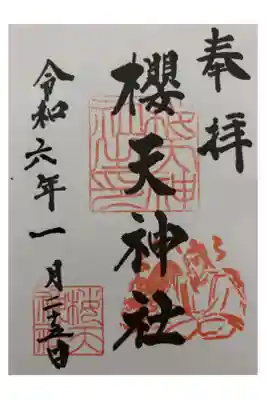 奉拝
櫻天神社
令和六年一月二十五日